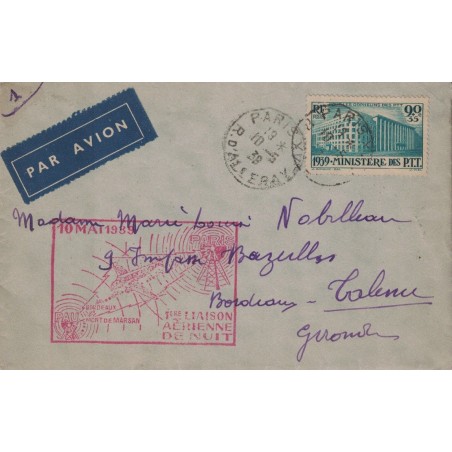 1
PAR AVION
PARIS XV
R. D'ALLERAY
19 *
10 - 5
39
RF
ORPHELINS DES PTT
90c
35
1939 - MINISTÈRE DES P.T.T.
Madame Marie Louise Nobilleau
9 Impasse Bazeilles
Bordeaux - Talence
Gironde
10 MAI 1939
PARIS
BORDEAUX
MONT DE MARSAN
PAU
1ÈRE LIAISON
AÉRIENNE
DE NUIT